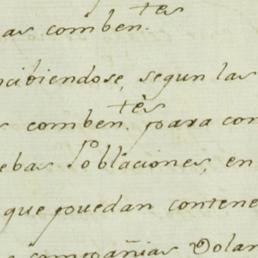 as comben.tes
ncibiendose, segun las
s comben.tes para con
ebas Poblaciones, en
que puedan contene
compañias Volan